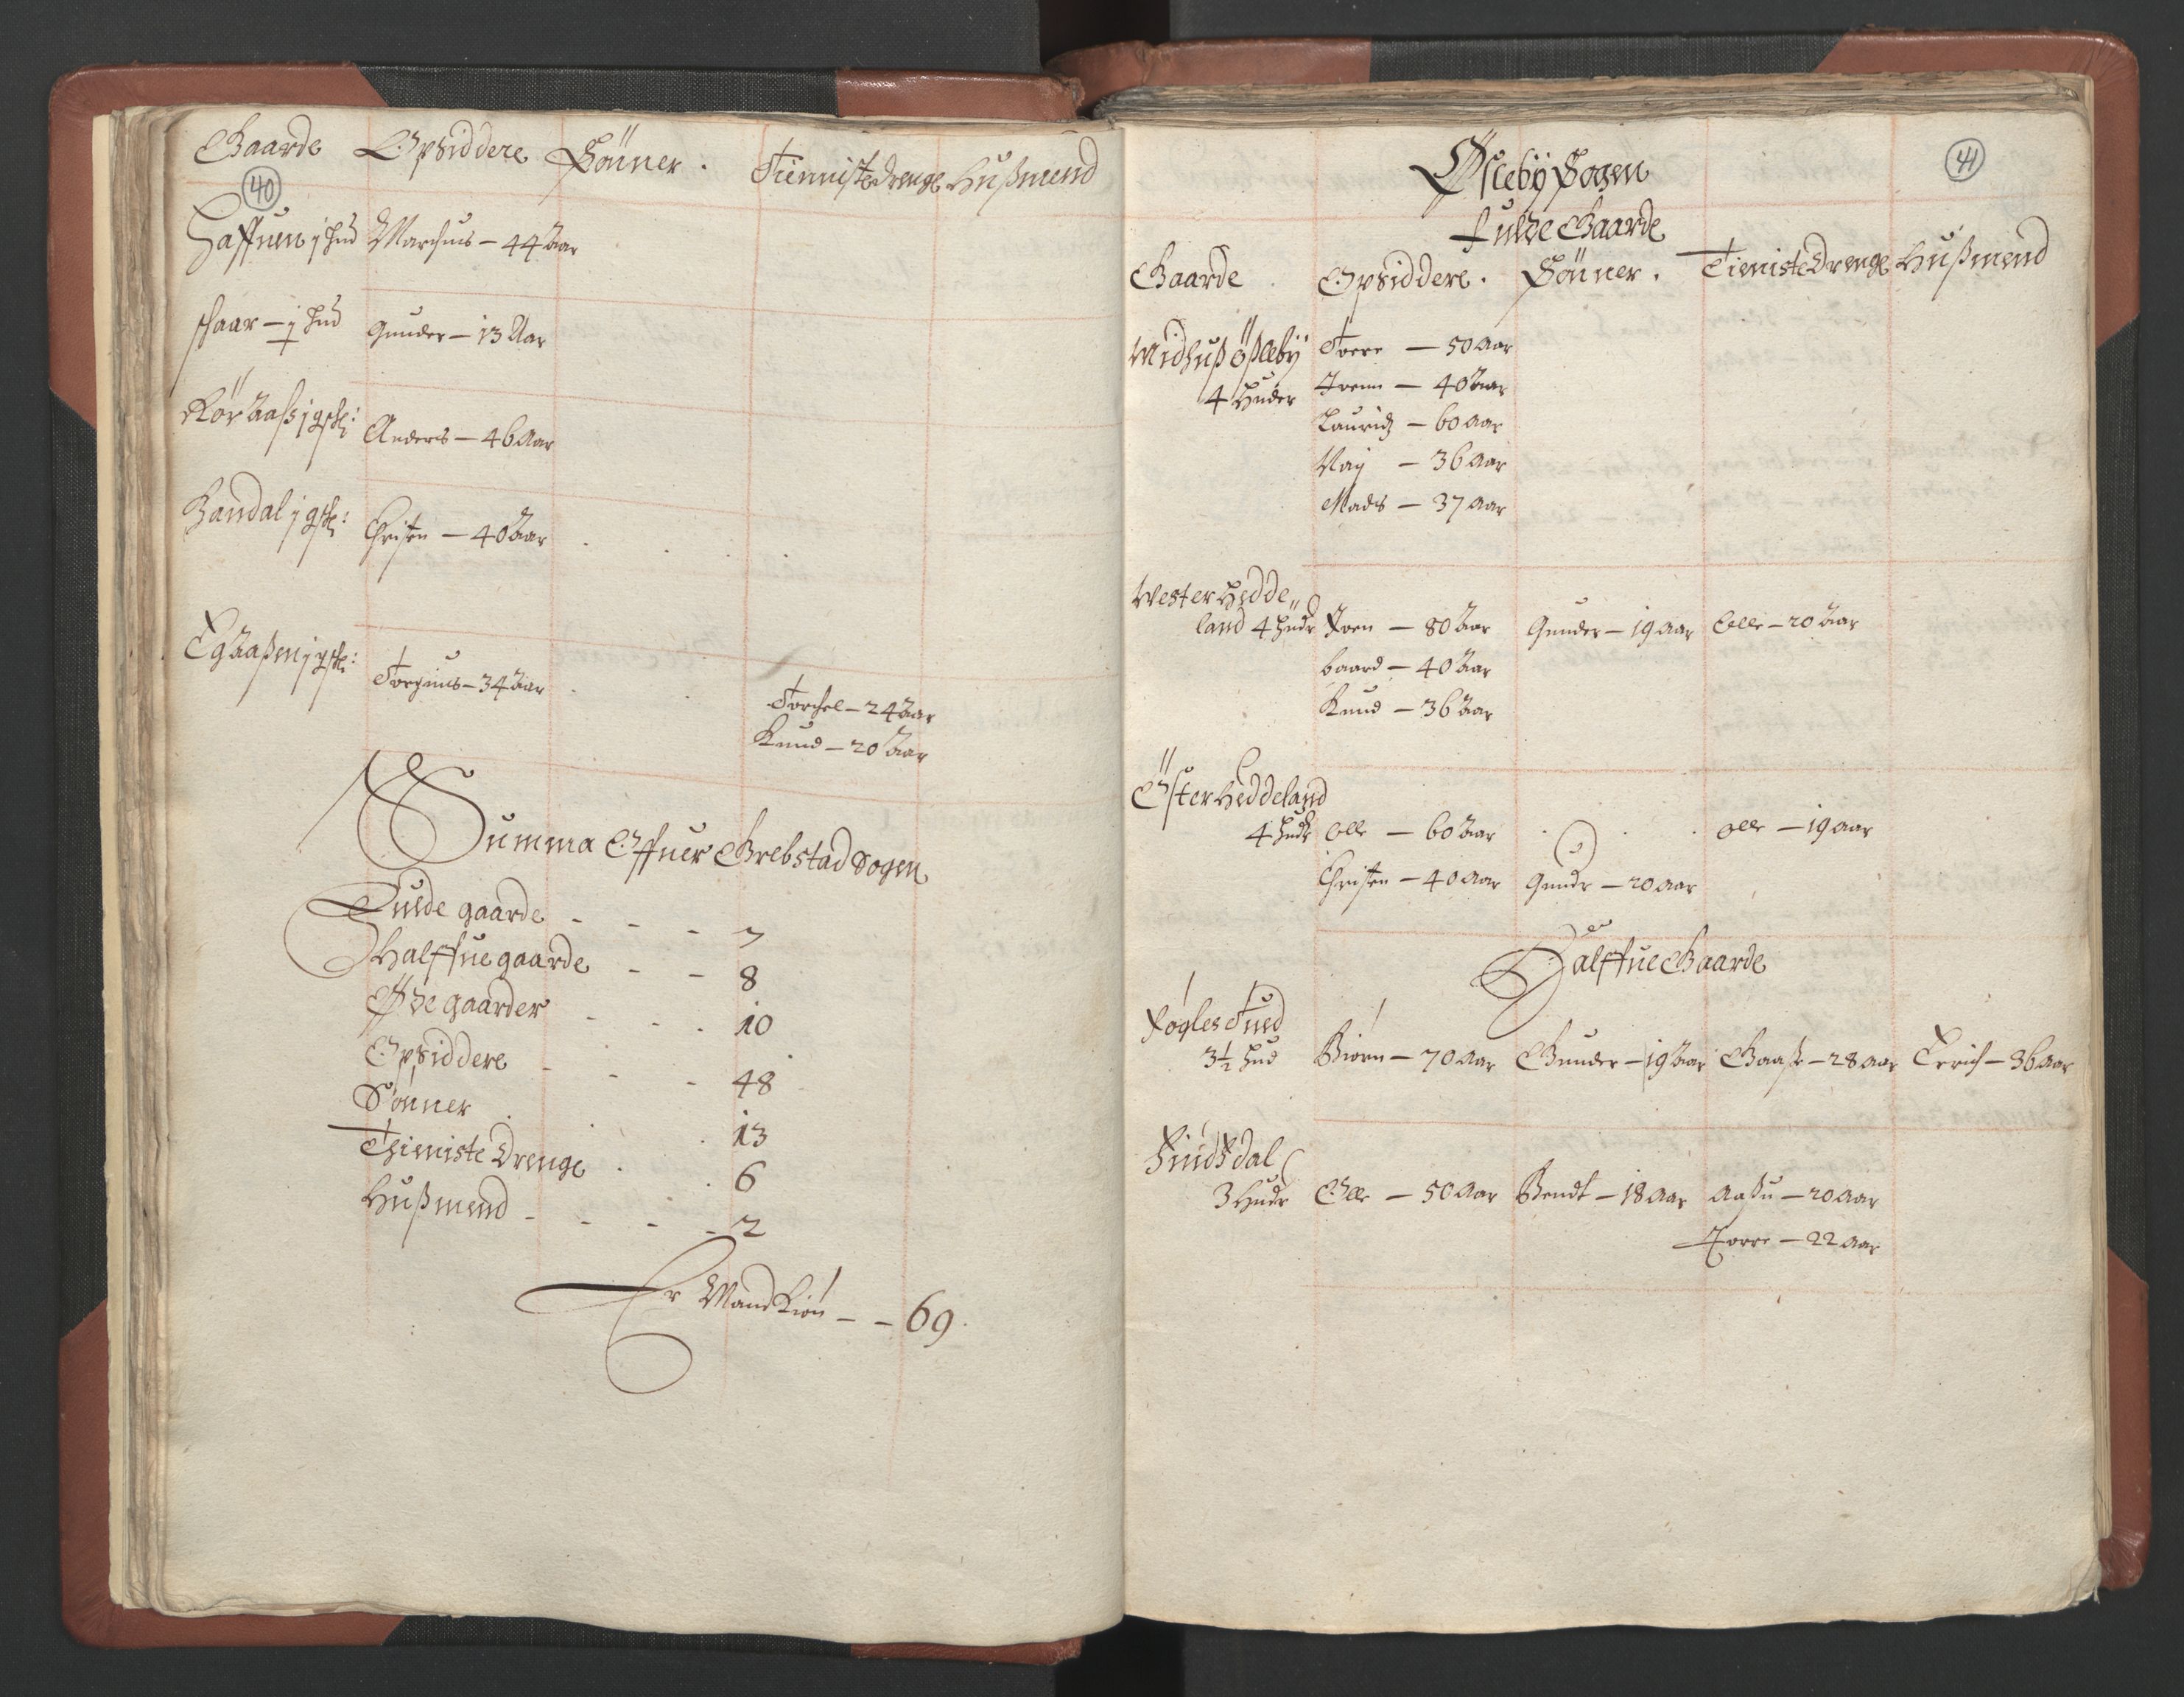 Gaarde Opsiddere Sönner. Tiennistedrenge Hußmend
40
Haffuen 1 hud Marchus – 44 Aar
schaar – 1 hud Gunder – 13 Aar
Rör Aaß 1 gsk: Anders – 46 Aar
Bandal 1 gsk: Christen – 40 Aar
Eg Aaßen 1 gsk: Torgius – 34 Aar
Torchel – 24 Aar
Knud – 20 Aar
Summa Offuer Grebstad Sogen
Fulde gaarde - - - 7
Halffue gaarde - - 8
Øde gaarder - - - 10
Opsiddere - - - 48
Sönner 13
Thieniste Drenge 6
Hußmend - - - - 2
Er Mand Kiön - - 69.
41
Øsleby Sogen
Fulde Gaarde
Gaarde Opsiddere. Sönner. Tieniste Drenge Hußmend
Midhuß ößleby Torre – 50 Aar
4 Huder Iven – 40 Aar
Lauridz – 60 Aar
– 36 Aar
Mads – 37 Aar
Wester Hedde„
land 4 hudr Iven – 80 Aar Gunder – 19 Aar Olle – 20 Aar
baard – 40 Aar
Knud – 36 Aar
Öster Heddeland
4 hudr Olle – 60 Aar . . . olle – 19 Aar
Christen – 40 Aar Gundr – 20 Aar
Halffue Gaarde
Fogles Tued
3½ hud Biörn – 70 Aar Gunder – 19 Aar Gaaße – 28 Aar Erich – 36 Aar
Findsdal
3 Hudr Olle – 50 Aar Bendt – 18 Aar Aaßu – 20 Aar
Torre – 22 Aar